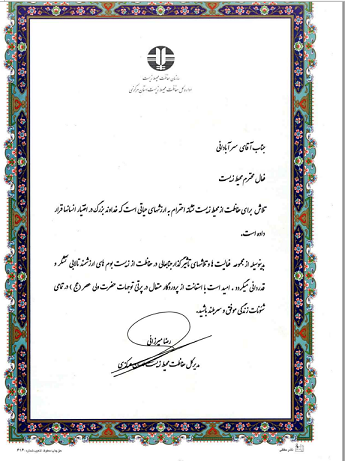 سازمان حفاظت محیط زیست
اداره کل حفاظت محیط زیست استان مرکزی
جناب آقای سرآبادانی
فعال محترم محیط زیست
تلاش برای حفاظت از محیط زیست نشانه احترام به ارزشهای حیاتی است که خداوند بزرگ در اختیار انسانها قرار
داده است.
بدینوسیله از مجموعه فعالیت ها و تلاشهای تاثیرگذار جنابعالی در حفاظت از زیست بوم های ارزشمند تالابی تشکر و
قدردانی میگردد . امید است با استعانت از پروردگار متعال در پرتو توجهات حضرت ولی عصر (عج) در تمامی
شئونات زندگی موفق و سربلند باشید.
رضا میرزائی
مدیرکل حفاظت محیط زیست استان مرکزی